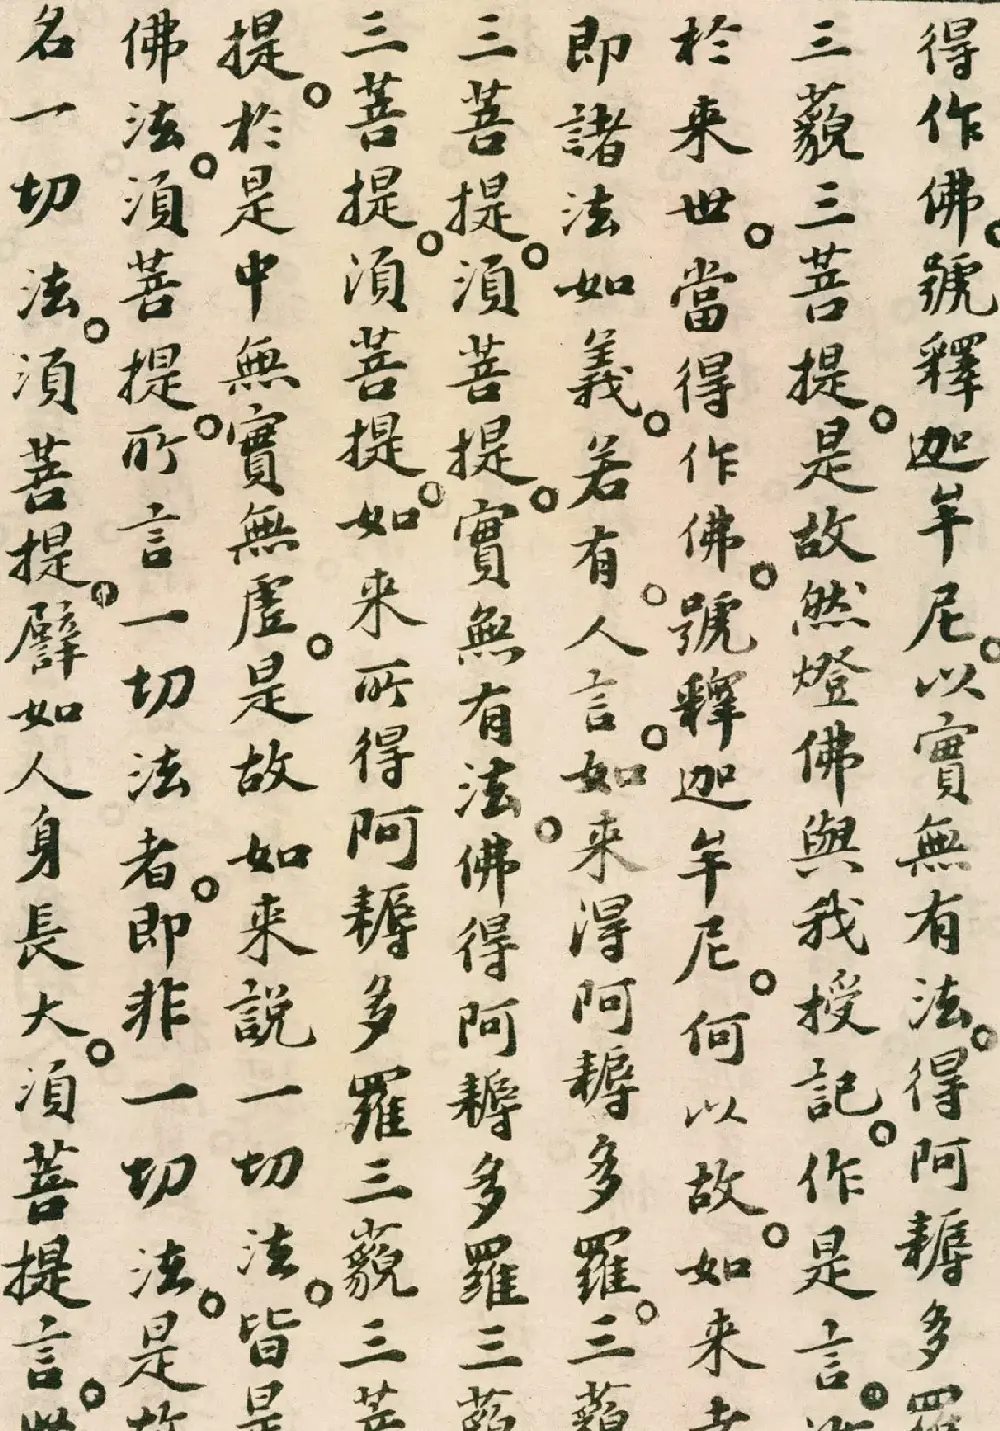 得作佛號釋迦牟尼以實無有法得阿耨多羅
三藐三菩提是故然燈佛與我授記作是言汝
於来世當得作佛號釋迦牟尼何以故如来者
即諸法如義若有人言如来得阿耨多羅三藐
三菩提須菩提實無有法佛得阿耨多羅三藐
三菩提須菩提如来所得阿耨多羅三藐三菩
提於是中無實無虛是故如来說一切法皆是
佛法須菩提所言一切法者即非一切法是故
名一切法須菩提譬如人身長大須菩提言